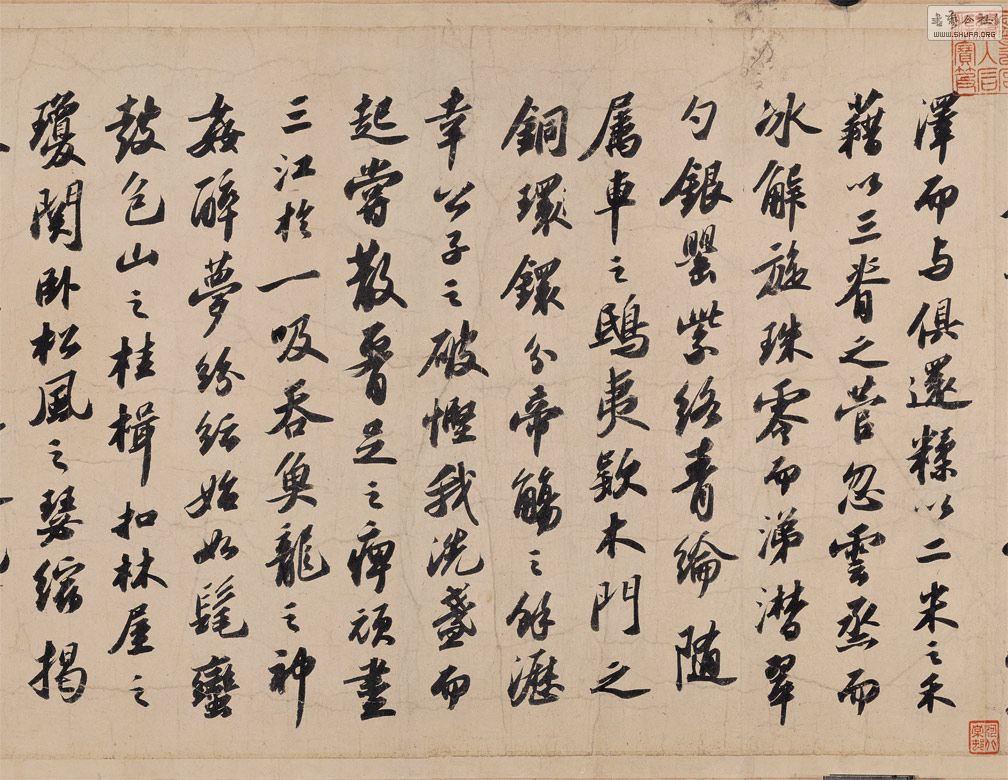 澤而与俱還糅以二米之禾
藉以三脊之菅忽雲烝而
冰解旋珠零而涕潸翠
勺銀罌紫絡青綸隨
属車之鴟夷款木門之
銅環鐶分帝觴之餘瀝
幸公子之破慳我洗盞而
起嘗散腰足之痺頑盡
三江於一吸吞魚龍之神
姦醉夢紛紜始如髦蠻
鼓包山之桂楫扣林屋之
瓊關臥松風之瑟縮揭
www.SHUFA.ORG